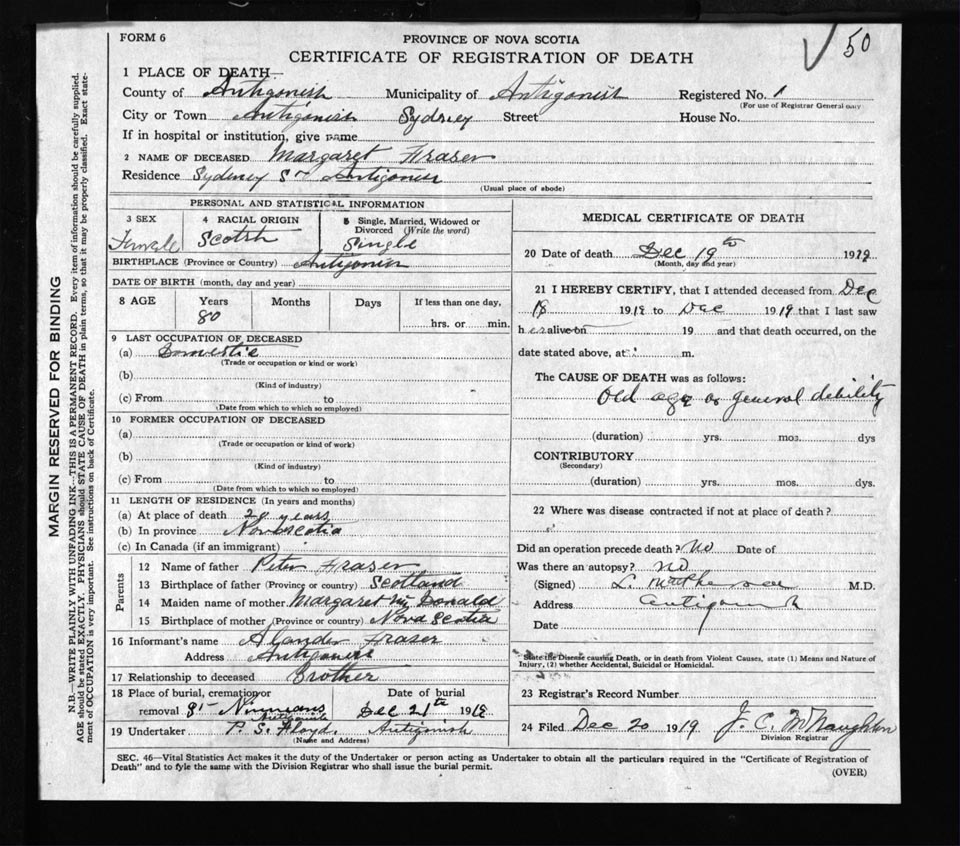 FORM 6
50
PROVINCE OF NOVA SCOTIA
CERTIFICATE OF REGISTRATION OF DEATH
1 PLACE OF DEATH
County of Antigonish Municipality of Antigonish Registered No. 1
(For use of Registrar General only)
City or Town Antigonish Sydney Street House No.
If in hospital or institution, give name
2 NAME OF DECEASED Margaret Fraser
Residence Sydney St Antigonish
(Usual place of abode)
PERSONAL AND STATISTICAL INFORMATION
3 SEX 4 RACIAL ORIGIN 5 Single, Married, Widowed or Divorced (Write the word)
Female Scotch Single
BIRTHPLACE (Province or Country) Antigonish
DATE OF BIRTH (month, day and year)
8 AGE Years Months Days If less than one day,
80 hrs. or min.
9 LAST OCCUPATION OF DECEASED
(a) Domestic
(Trade or occupation or kind or work)
(b)
(Kind of industry)
(c) From to
(Date from which to which so employed)
10 FORMER OCCUPATION OF DECEASED
(a)
(Trade or occupation or kind of work)
(b)
(Kind of industry)
(c) From to
(Date from which to which so employed)
11 LENGTH OF RESIDENCE (In years and months)
(a) At place of death 20 years
(b) In province Nova Scotia
(c) In Canada (if an immigrant)
Parents
12 Name of father Peter Fraser
13 Birthplace of father (Province or country) Scotland
14 Maiden name of mother Margaret Mc Donald
15 Birthplace of mother (Province or country) Nova Scotia
16 Informant's name Fraser
Address Antigonish
17 Relationship to deceased Brother
18 Place of burial, cremation or Date of burial
removal St Ninians Dec 21th 1919
Antigonish
19 Undertaker P. S. Floyd. Antigonish
(Name and Address)
MEDICAL CERTIFICATE OF DEATH
20 Date of death Dec 19th 1919
(Month, day and year)
21 I HEREBY CERTIFY, that I attended deceased from Dec
18 1919 to Dec 1919 that I last saw
her alive on 19 and that death occurred, on the
date stated above, at m.
The CAUSE OF DEATH was as follows:
Old age or general debility
(duration) yrs. mos. dys
CONTRIBUTORY
(Secondary)
(duration) yrs. mos. dys.
22 Where was disease contracted if not at place of death?
Did an operation precede death? No Date of
Was there an autopsy? No
(Signed) L. McPherson M.D.
Address Antigonish
Date
State the Disease causing Death, or in death from Violent Causes, state (1) Means and Nature of
Injury, (2) whether Accidental, Suicidal or Homicidal.
23 Registrar's Record Number
24 Filed Dec 20 1919 J. C. McNaughton
Division Registrar
SEC. 46—Vital Statistics Act makes it the duty of the Undertaker or person acting as Undertaker to obtain all the particulars required in the "Certificate of Registration of
Death" and to fyle the same with the Division Registrar who shall issue the burial permit.
(OVER)
MARGIN RESERVED FOR BINDING
N.B.—WRITE PLAINLY WITH UNFADING INK—THIS IS A PERMANENT RECORD. Every item of information should be carefully supplied.
AGE should be stated EXACTLY. PHYSICIANS should STATE CAUSE OF DEATH in plain terms, so that it may be properly classified. Exact state-
ment of OCCUPATION is very important. See instructions on back of Certificate.